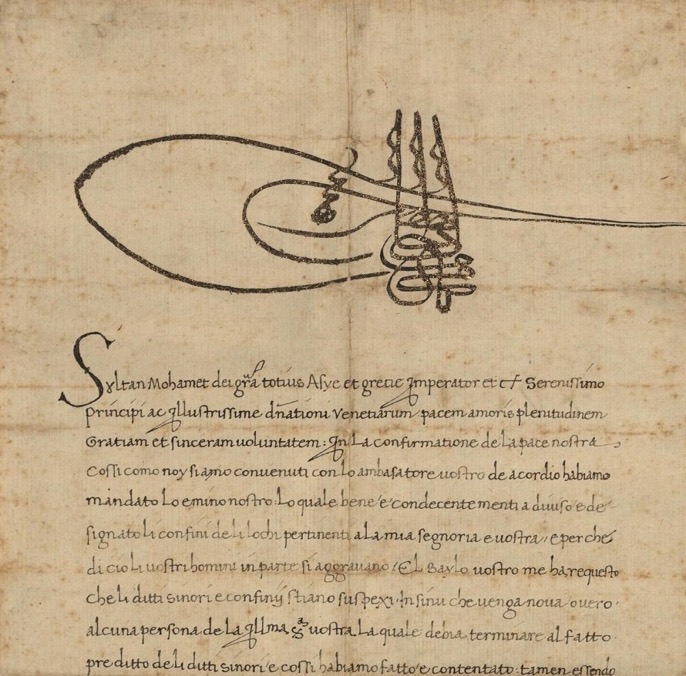 Sultan Mohamet dei gr̃a totius Asye et grecie Imperator et c̃ Serenissimo
principi ac Illustrissime dñationi Venetiarum pacem amoris plenitudinem
Gratiam et sinceram voluntatem: In La confirmatione de La pace nostra
Cossi como noy siamo convenuti con Lo ambasatore vostro de acordio habiamo
mandato Lo emino nostro: Lo quale bene e condecentementi a diuiso e de
signato li confini de li lochi pertinenti a La mia segnoria e vostra: e perche
di cio li vostri homini in parte si aggravano: El Baylo vostro me ha requesto
che li ditti sinori e confinij stiano suspexi: In sinu che venga nova overo
alcuna persona de La Illma S vostra La quale debia terminare al fatto
pre ditto de li ditti sinori e cossi habiamo fatto e contentato: tamen essendo